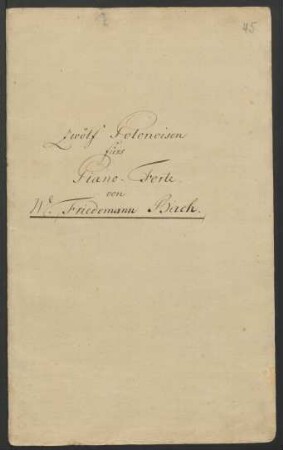 45
Zwölf Polonoisen
fürs
Piano-Forte
von
W. Friedemann Bach.